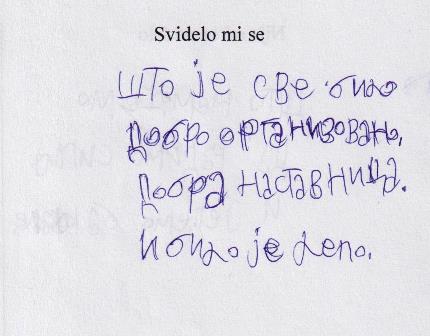 Svidelo mi se
Што је све било
добро организовано,
добра наставница.
И било је лепо.